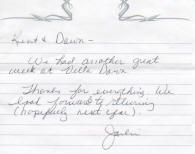 Kent & Dawn -
We had another great
week at Villa Dawn.
Thanks for everything. We
look forward to returning
(hopefully next year).